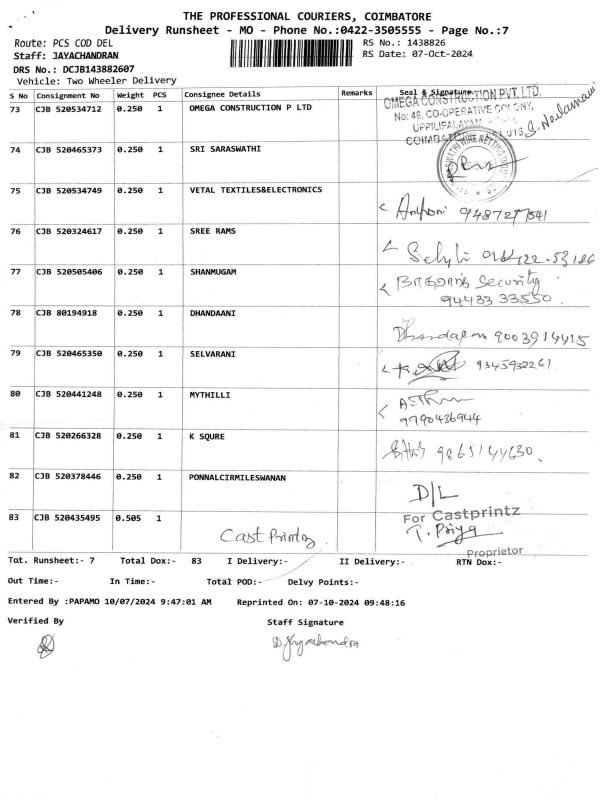 THE PROFESSIONAL COURIERS, COIMBATORE
Delivery Runsheet - MO - Phone No.:0422-3505555 - Page No.:7
Route: PCS COD DEL
RS No.: 1438826
Staff: JAYACHANDRAN
RS Date: 07-Oct-2024
DRS No.: DCJB143882607
Vehicle: Two Wheeler Delivery
S No Consignment No Weight PCS Consignee Details Remarks Seal & Signature
OMEGA CONSTRUCTION PVT. LTD.
73 CJB 520534712 0.250 1 OMEGA CONSTRUCTION P LTD
No: 46, CO-OPERATIVE COLONY,
UPPILIPALAYAM
74 CJB 520465373 0.250 1 SRI SARASWATHI
75 CJB 520534749 0.250 1 VETAL TEXTILES&ELECTRONICS
76 CJB 520324617 0.250 1 SREE RAMS
77 CJB 520505406 0.250 1 SHANMUGAM
Security
94433 33550
78 CJB 80194918 0.250 1 DHANDAANI
Dhandapani 9003914415
79 CJB 520465350 0.250 1 SELVARANI
9345932261
80 CJB 520441248 0.250 1 MYTHILLI
9790436944
81 CJB 520266328 0.250 1 K SQURE
9865144630
82 CJB 520378446 0.250 1 PONNALCIRMILESWANAN
D/L
83 CJB 520435495 0.505 1 Cast Printz
For Castprintz
T. Priya
Proprietor
Tot. Runsheet:- 7 Total Dox:- 83 I Delivery:- II Delivery:- RTN Dox:-
Out Time:- In Time:- Total POD:- Delvy Points:-
Entered By :PAPAMO 10/07/2024 9:47:01 AM Reprinted On: 07-10-2024 09:48:16
Verified By Staff Signature
D. Jayachandra